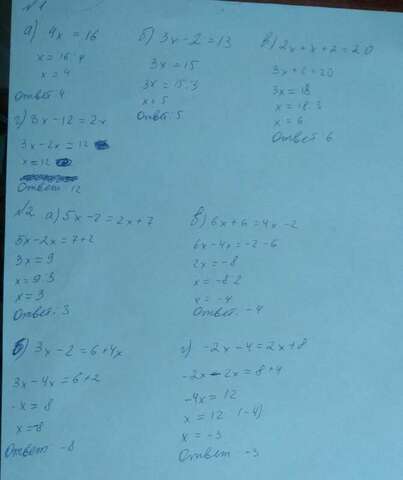 №1
а) 4x = 16
x = 16:4
x = 4
Ответ 4
б) 3x - 2 = 13
3x = 15
3x = 15:3
x = 5
Ответ: 5
в) 2x + x + 2 = 20
3x + 2 = 20
3x = 18
x = 18:3
x = 6
Ответ 6
г) 3x - 12 = 2x
3x - 2x = 12
x = 12
Ответ: 12
№2 а) 5x - 2 = 2x + 7
5x - 2x = 7 + 2
3x = 9
x = 9:3
x = 3
Ответ: 3
в) 6x + 6 = 4x - 2
6x - 4x = -2 - 6
2x = -8
x = -8:2
x = -4
Ответ: -4
б) 3x - 2 = 6 + 4x
3x - 4x = 6 + 2
-x = 8
x = -8
Ответ -8
г) -2x - 4 = 2x + 8
-2x - 2x = 8 + 4
-4x = 12
x = 12:(-4)
x = -3
Ответ -3